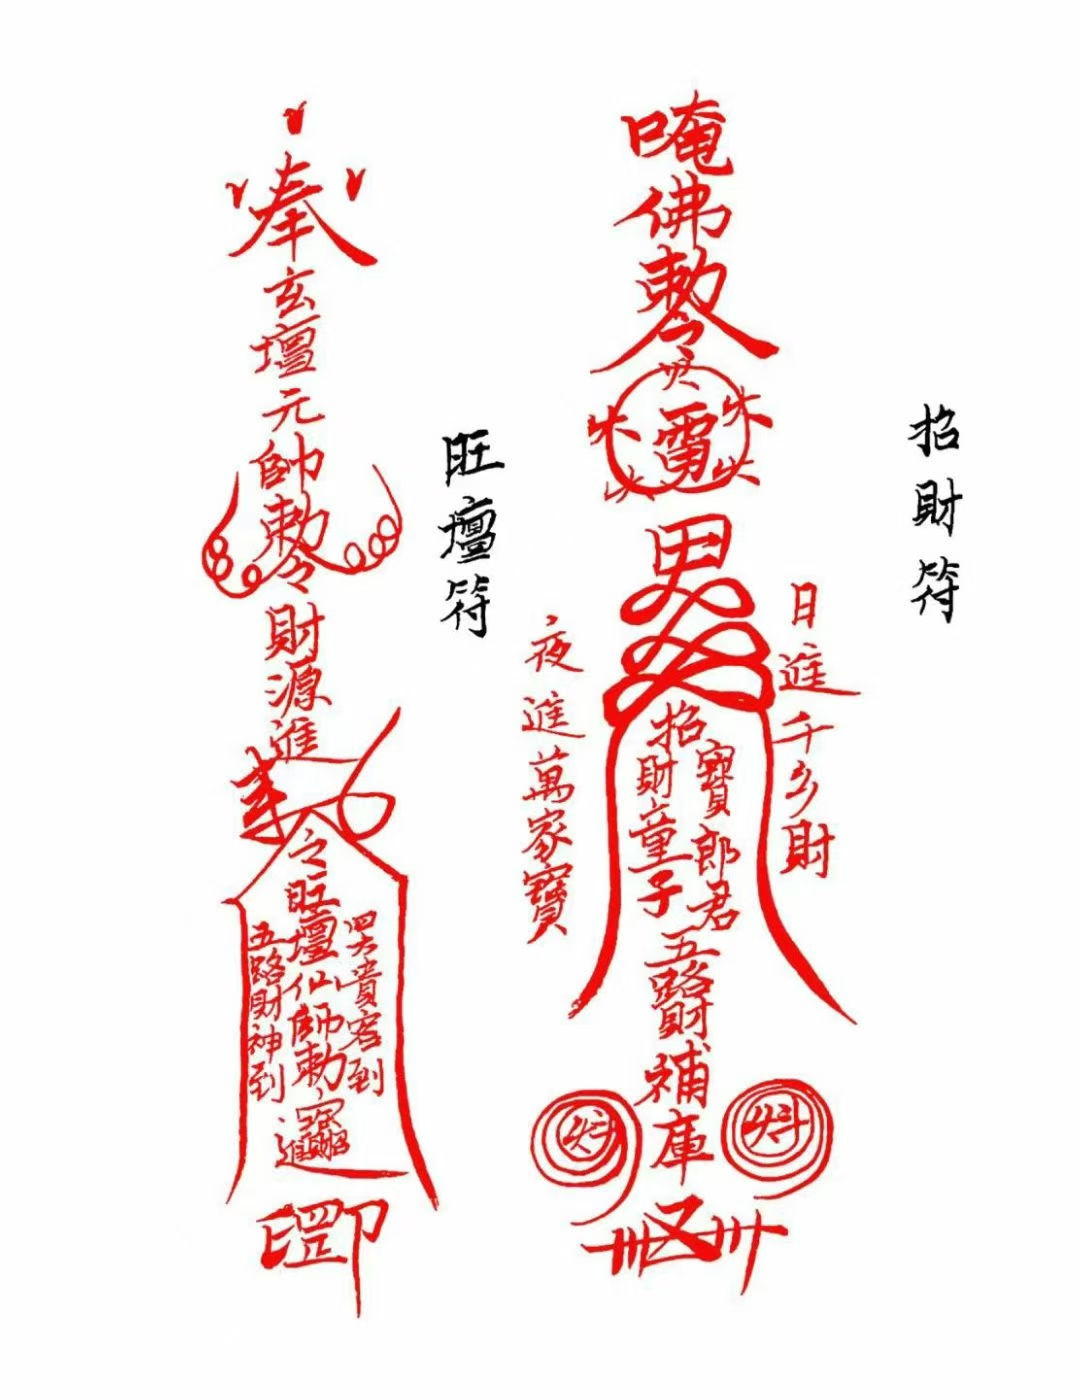 招財符
唵佛勅令
雷
男
日進千鄉財
夜進萬家寶
招財童子
寶郎君
五路財補庫
旺壇符
奉玄壇元帥勅令財源進
令旺壇仙師勅
四方貴客到
五路財神到
進
印